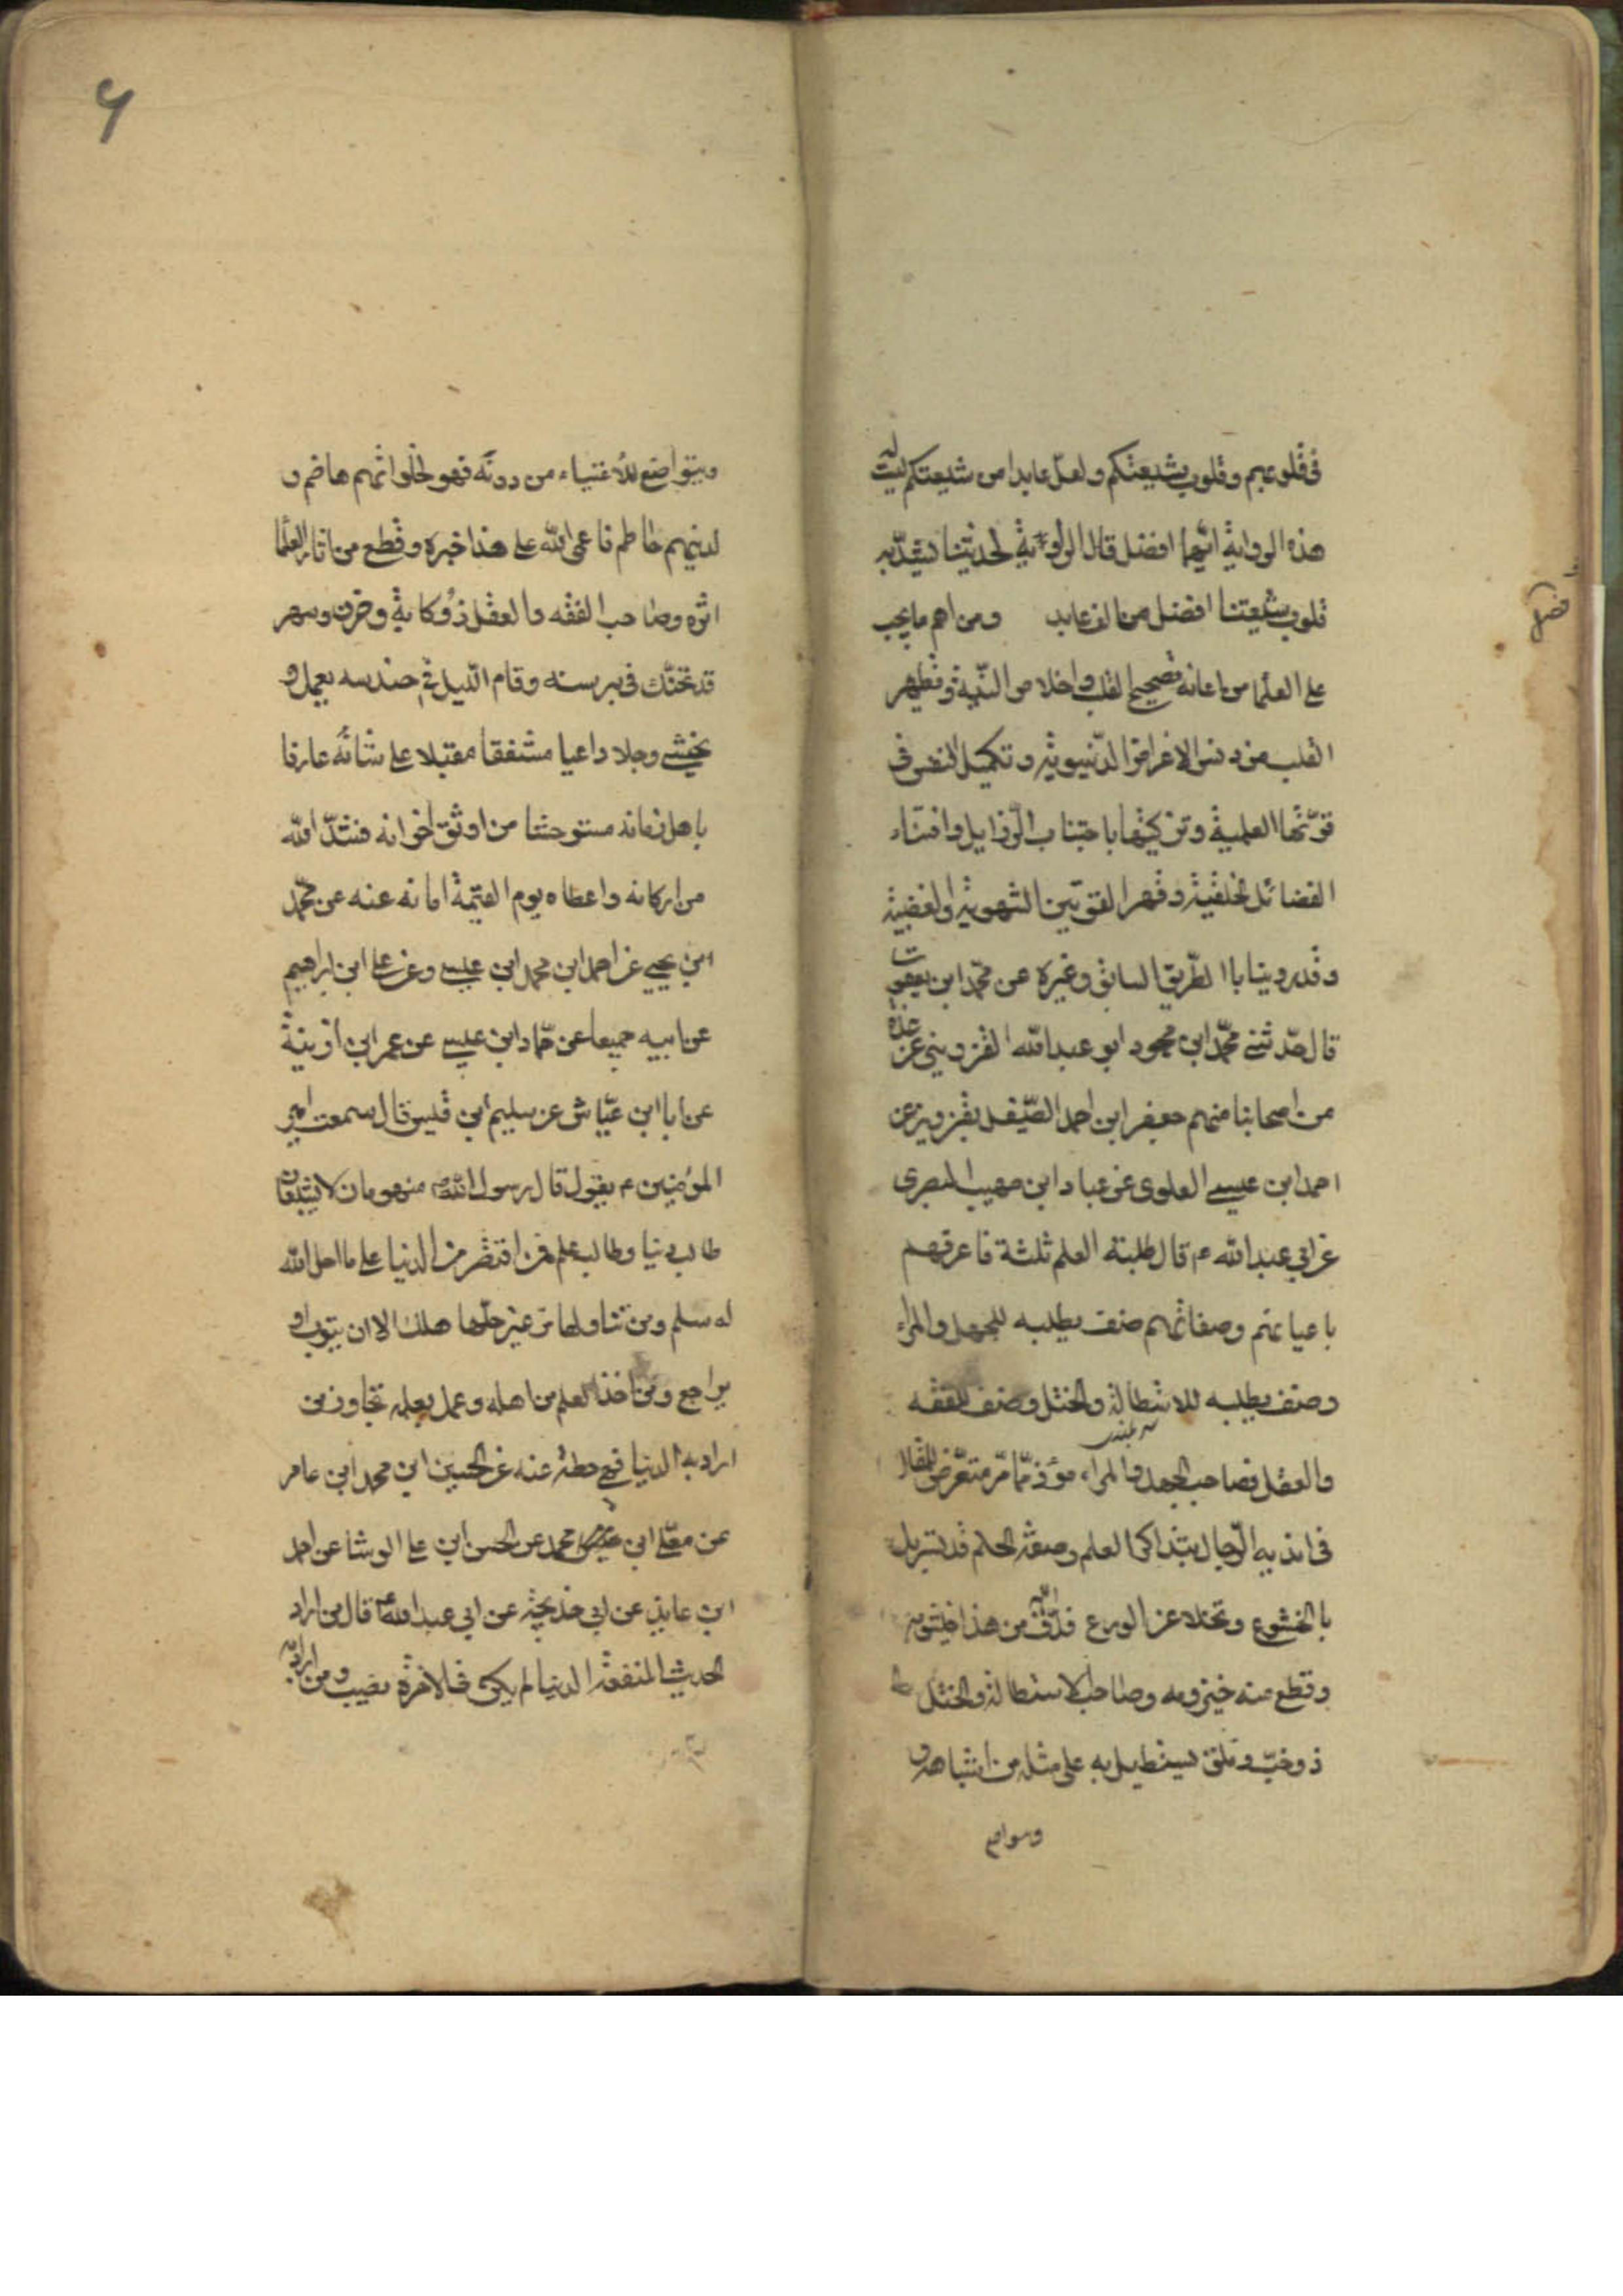 فى قلوبهم وقلوب شيعتكم ولعل عابدا من شيعتكم ليت له
هذه الرواية ايهما افضل قال الراوية لحديثنا يشد به
قلوب شيعتنا افضل من الف عابد ومن اهم ما يجب
على العلما مراعاته تصحيح القلب واخلاص النية وتطهير
القلب من دنس الاغراض الدنيوية وتكميل النفس فى
قوتها العلمية وتزكيتها باجتناب الرذايل واقتناء
الفضائل الخلقية وقهر القوتين الشهوية والغضبية
وقد روينا باالطريق السابق وغيره عن محمد ابن يعقوب
قال حدثنى محمد ابن محمود ابو عبد الله القزوينى عن عدة
من اصحابنا منهم جعفر ابن احمد الصيقل بقزوين عن
احمد ابن عيسى العلوى عن عباد ابن صهيب البصرى
عن ابى عبد الله ع قال طلبة العلم ثلثة فاعرفهم
باعيانهم وصفاتهم صنف يطلبه للجهل والمراء
وصنف يطلبه للاستطالة والختل وصنف للفقه
والعقل فصاحب الجهل والمراء موذ ممار متعرض للمقال
فى اندية الرجال بتذاكر العلم وصفة الحلم قد تسربل
بالخشوع وتخلا عن الورع فدق الله من هذا خيشومه
وقطع منه حيزومه وصاحب الاستطالة والختل
ذو خب وملق يستطيل به على مثله من اشباهه و
افضل
ويتواضع للاغنياء من دونه فهو لحلوائهم هاضم و
لدينهم حاطم فاعمى الله على هذا خبره وقطع من اثار العلما
اثره وصاحب الفقه والعقل ذو كابة وحزن وسهر
قد تحنك فى برنسه وقام الليل فى حندسه يعمل و
يخشى وجلا داعيا مشفقا مقبلا على شانه عارفا
باهل زمانه مستوحشا من اوثق اخوانه فشد الله
من اركانه واعطاه يوم القيمة امانه عنه عن محمد
ابن يحيى عن احمد ابن محمد ابن عيسى وعن على ابن ابراهيم
عن ابيه جميعا عن حماد ابن عيسى عن عمر ابن اذينة
عن ابا ابن عياش عن سليم ابن قيس قال سمعت امير
المؤمنين ع يقول قال رسول الله ص منهومان لا يشبعان
طالب دنيا وطالب علم فمن اقتصر من الدنيا على ما احل الله
له سلم ومن تناولها من غير حلها هلك الا ان يتوب او
يراجع ومن اخذ العلم من اهله وعمل بعلمه نجا ومن
اراد به الدنيا فهى حظه عنه عن الحسين ابن محمد ابن عامر
عن معلى ابن محمد عن الحسن ابن على الوشا عن احمد
ابن عايذ عن ابى خديجة عن ابى عبد الله ع قال من اراد
الحديث لمنفعة الدنيا لم يكن فى الاخرة نصيب ومن اراد به